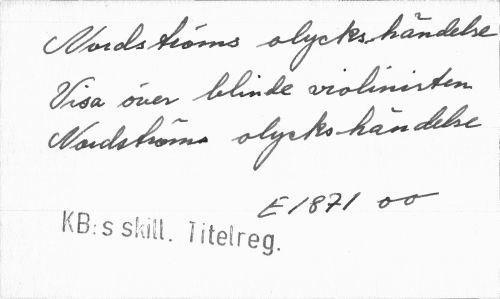 Nordströms olyckshändelse
Visa över blinde violinisten
Nordströms olyckshändelse
E 1871 oo
KB:s skill. Titelreg.